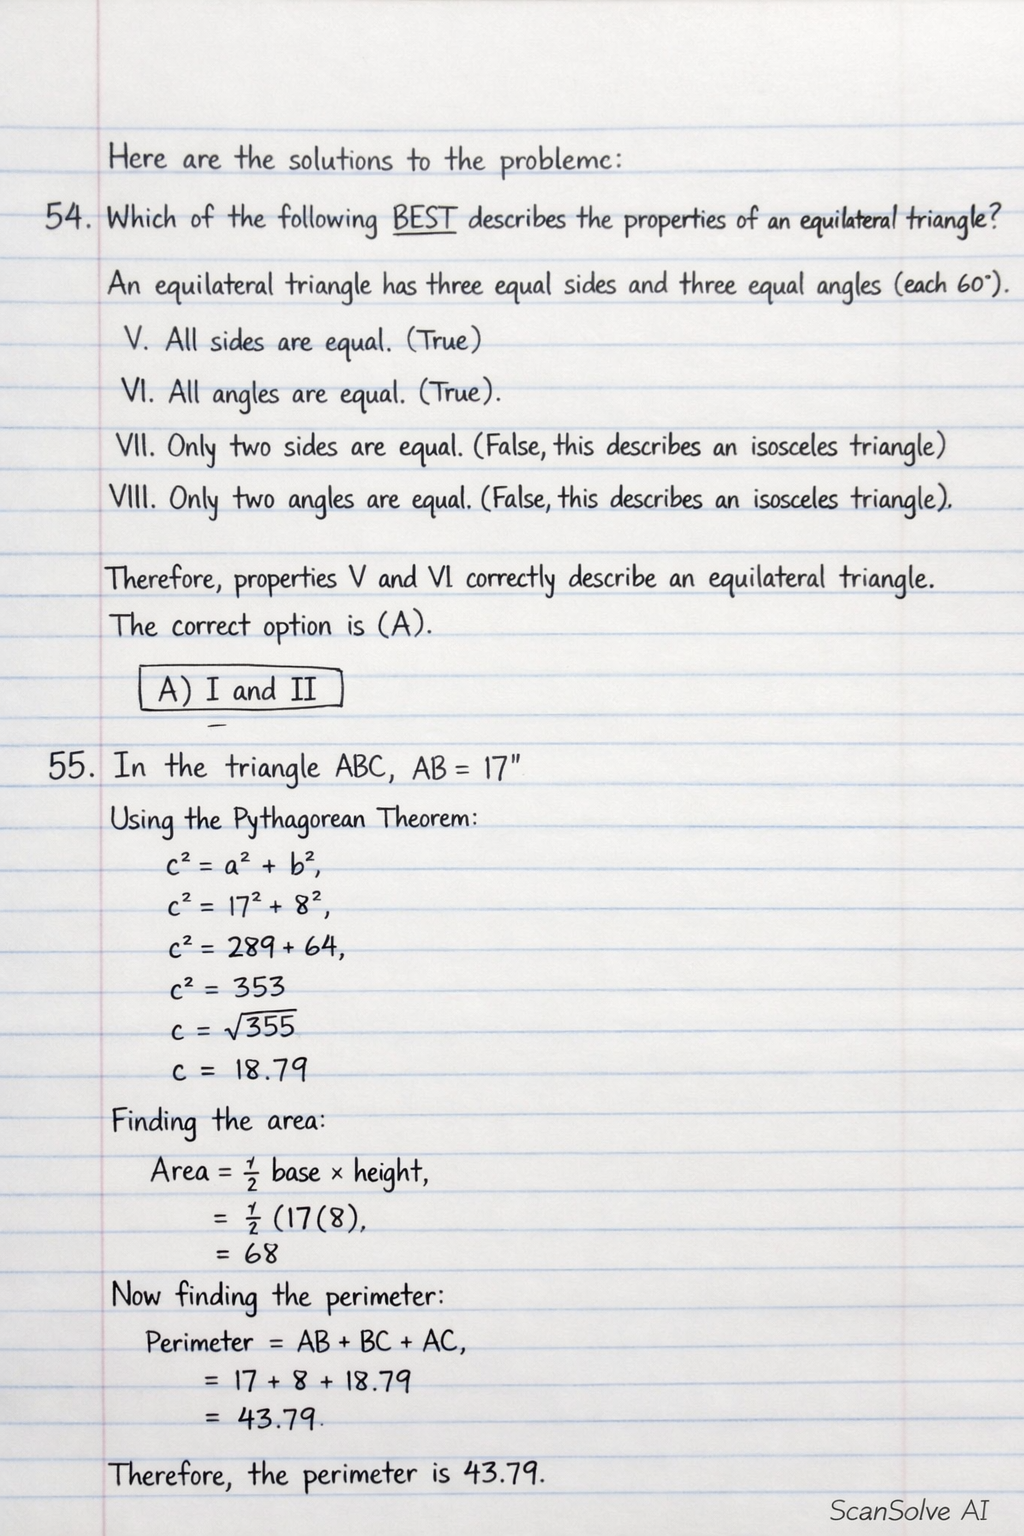 Here are the solutions to the probleme:
54. Which of the following BEST describes the properties of an equilateral triangle?
An equilateral triangle has three equal sides and three equal angles (each 60°).
V. All sides are equal. (True)
VI. All angles are equal. (True).
VII. Only two sides are equal. (False, this describes an isosceles triangle)
VIII. Only two angles are equal. (False, this describes an isosceles triangle).
Therefore, properties V and VI correctly describe an equilateral triangle.
The correct option is (A).
A) I and II
55. In the triangle ABC, AB = 17"
Using the Pythagorean Theorem:
c² = a² + b²,
c² = 17² + 8²,
c² = 289 + 64,
c² = 353
c = √355
c = 18.79
Finding the area:
Area = ½ base × height,
= ½ (17(8),
= 68
Now finding the perimeter:
Perimeter = AB + BC + AC,
= 17 + 8 + 18.79
= 43.79.
Therefore, the perimeter is 43.79.
ScanSolve AI